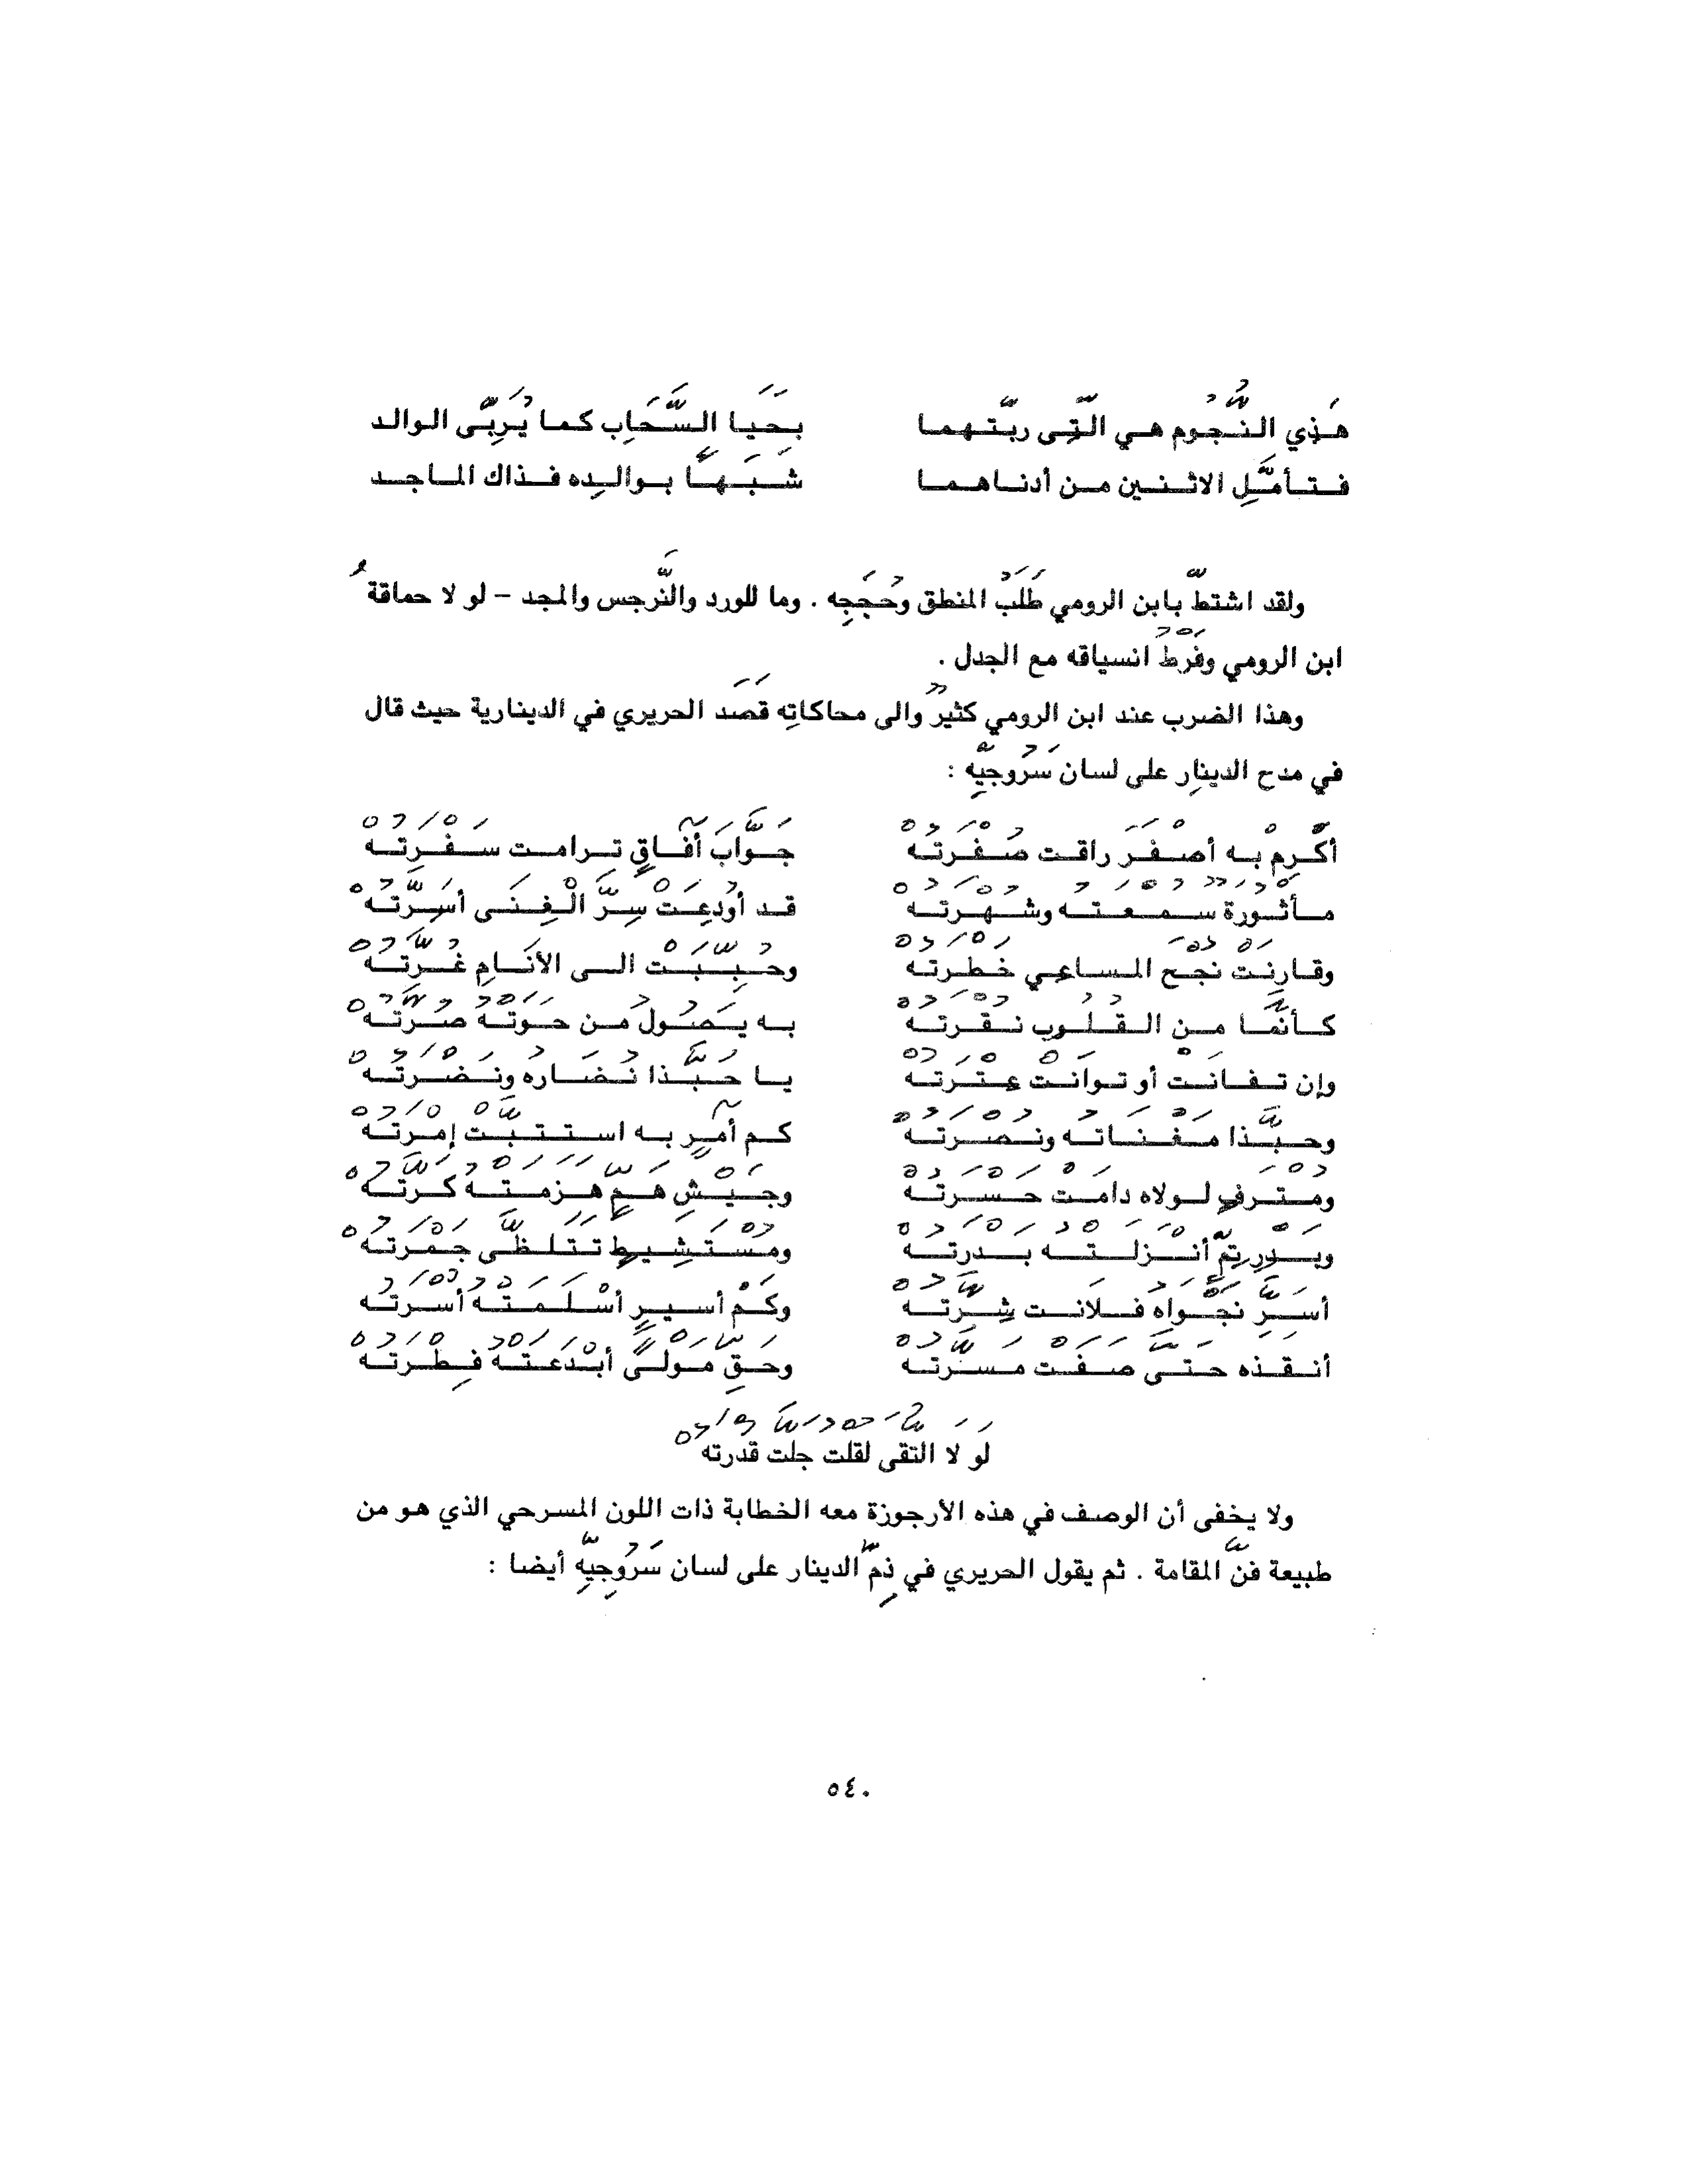 هَذِي النُّجُوم هي الَّتِى ربّتهما بِحَيَا السَّحَابِ كما يُرَبِّى الوالد
فتأمَّلِ الاثنين من أدناهما شَبَهًا بوالِده فذاك الماجد
ولقد اشتطّ بابن الرومي طَلَبُ المنطق وحُجَجِه . وما للورد والنَّرجس والمجد – لو لا حماقةُ
ابن الرومي وفَرْطُ انسياقه مع الجدل .
وهذا الضرب عند ابن الرومي كثيرٌ والى محاكاتِه قَصَد الحريري في الدينارية حيث قال
في مدح الدينار على لسان سَرُوجيِّه :
أكْرِم بِه أصْفَرَ راقت صُفْرَتُهْ جَوَّابَ آفَاقٍ تَرامت سَفْرَتُهْ
مأثُورةٌ سُمْعَتُه وشُهْرَتُهْ قد أُودِعَتْ سِرَّ الْغِنَى أسِرَّتُهْ
وقارنَتْ نُجْحَ المساعِي خَطْرَتُهْ وحُبِّبَتْ الى الأنَامِ غُرَّتُهْ
كأنَّما من القُلُوب نُقْرَتُهْ به يَصُولُ من حَوَتْهُ صُرَّتُهْ
وإن تفانَتْ أو توانَتْ عِتْرَتُهْ يا حَبَّذا نُضَارُه ونَضْرَتُهْ
وحبَّذا مَغْنَاتُه ونُصْرَتُهْ كم آمرٍ به استتبَّتْ إمْرَتُهْ
ومُتْرَفٍ لولاه دامَتْ حَسْرَتُهْ وجَيْشِ هَمٍّ هَزَمَتْهُ كَرَّتُهْ
وبَدْرِ تِمٍّ أنْزَلَتْهُ بَدْرَتُهْ ومُسْتَشِيطٍ تَتَلظَّى جَمْرَتُهْ
أسَرَّ نَجْوَاهُ فَلانت شِرَّتُهْ وكَمْ أسيرٍ أسْلَمَتْهُ أُسْرَتُهْ
أنقذه حَتَّى صَفَتْ مَسَرَّتُهْ وحَقِّ مَوْلىً أبْدَعَتْهُ فِطْرَتُهْ
لَو لَا التُّقَى لَقُلتُ جَلَّتْ قُدْرَتُهْ
ولا يخفى أن الوصف في هذه الأرجوزة معه الخطابة ذات اللون المسرحي الذي هو من
طبيعة فنّ المقامة . ثم يقول الحريري في ذِمّ الدينار على لسان سَرُوجِيِّهِ أيضا :
٥٤٠